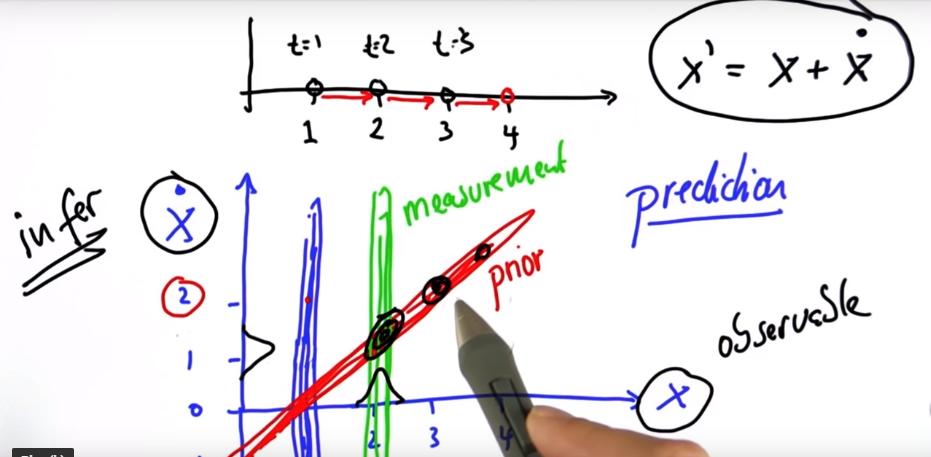 t=1 t=2 t=3
x' = x + ẋ
1 2 3 4
infer
ẋ
measurement
prediction
prior
2
observable
1
0
x
2 3 4